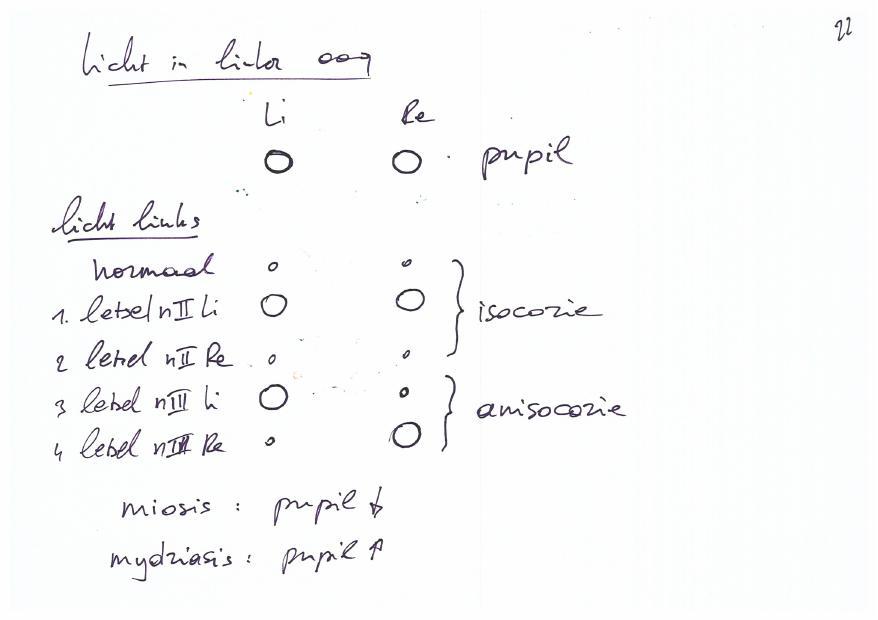 22
licht in linker oog
Li Re
pupil
licht links
normaal
1. letsel n II Li
isocorie
2 letsel n II Re
3 letsel n III Li
anisocorie
4 letsel n III Re
miosis : pupil ↓
mydriasis : pupil ↑